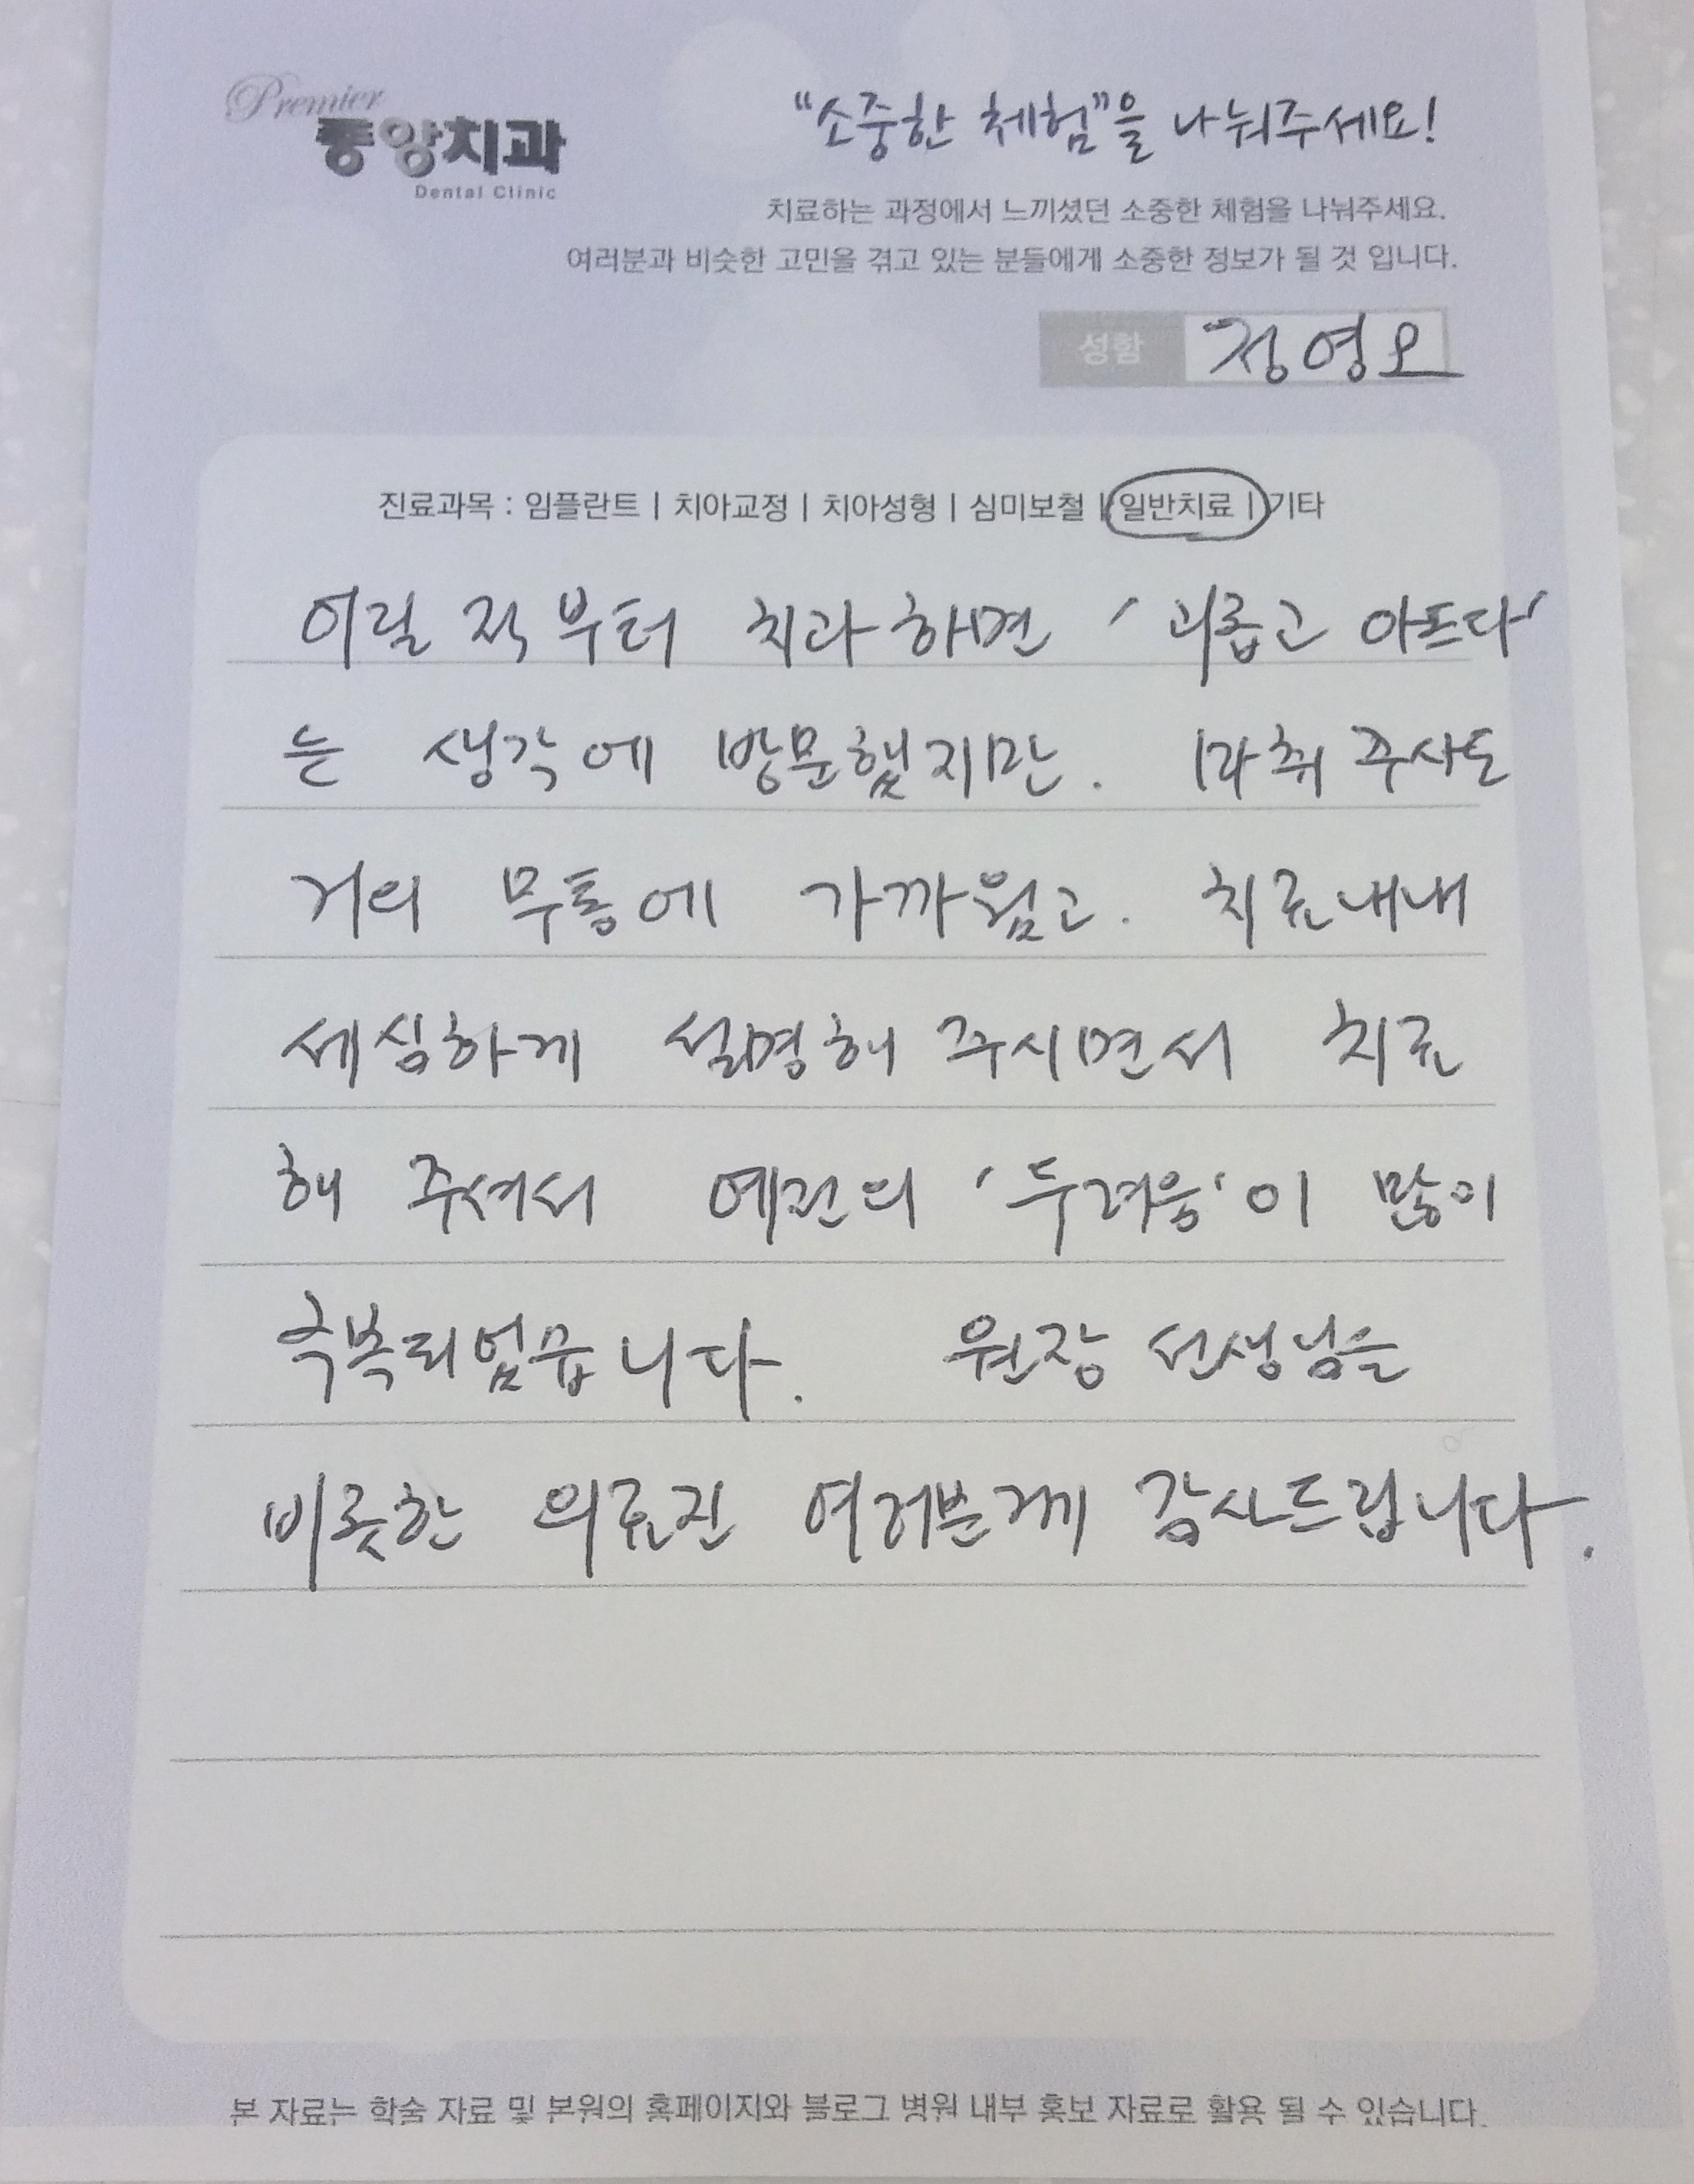 Premier
중앙치과
Dental Clinic
"소중한 체험"을 나눠주세요!
치료하는 과정에서 느끼셨던 소중한 체험을 나눠주세요.
여러분과 비슷한 고민을 겪고 있는 분들에게 소중한 정보가 될 것 입니다.
성함 정영오
진료과목 : 임플란트 | 치아교정 | 치아성형 | 심미보철 | 일반치료 | 기타
어릴 적 부터 치과 하면 '괴롭고 아프다'
는 생각에 방문했지만. 마취 주사도
거의 무통에 가까웠고. 치료내내
세심하게 설명해 주시면서 치료
해 주셔서 예전의 '두려움'이 많이
극복되었습니다. 원장 선생님을
비롯한 의료진 여러분께 감사드립니다.
본 자료는 학술 자료 및 본원의 홈페이지와 블로그 병원 내부 홍보 자료로 활용 될 수 있습니다.